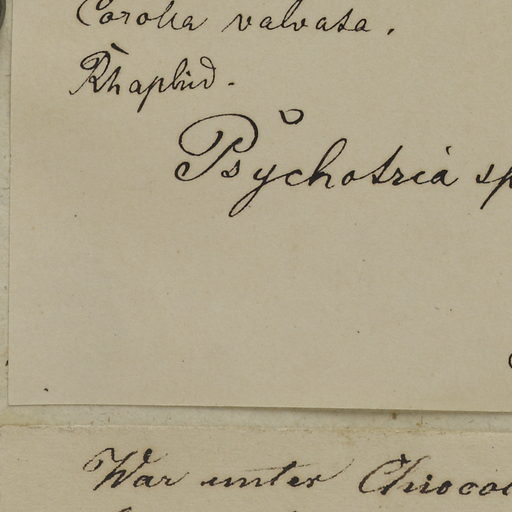 Corolla valvata.
Rhaphid.
Psychotria sp
War unter Chiococ